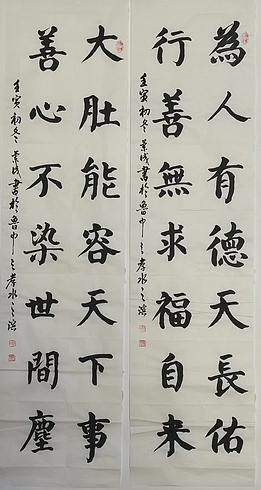 為人有德天長佑
行善無求福自来
壬寅初冬景成書於魯中之孝水之濱
大肚能容天下事
善心不染世間塵
壬寅初冬景成書於魯中之孝水之濱